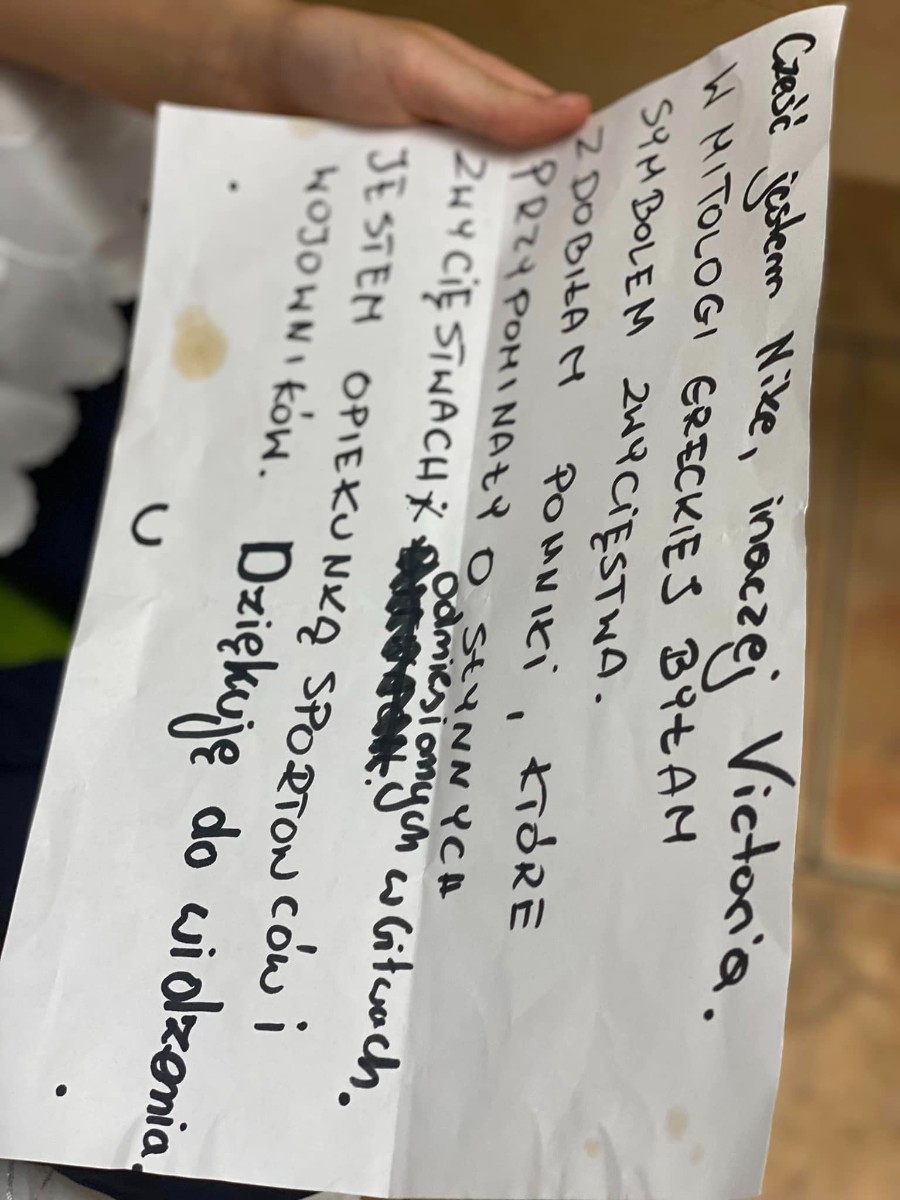 Cześć jestem Nike, inaczej Victoria.
W MITOLOGI GRECKIEJ BYŁAM
SYMBOLEM ZWYCIĘSTWA.
ZDOBIŁAM POMNIKI, KTÓRE
PRZYPOMINAŁY O SŁYNNYCH
ZWYCIĘSTWACH odniesionych w Bitwach.
JESTEM OPIEKUNKĄ SPORTOWCÓW i
WOJOWNIKÓW. Dziękuję do widzenia.